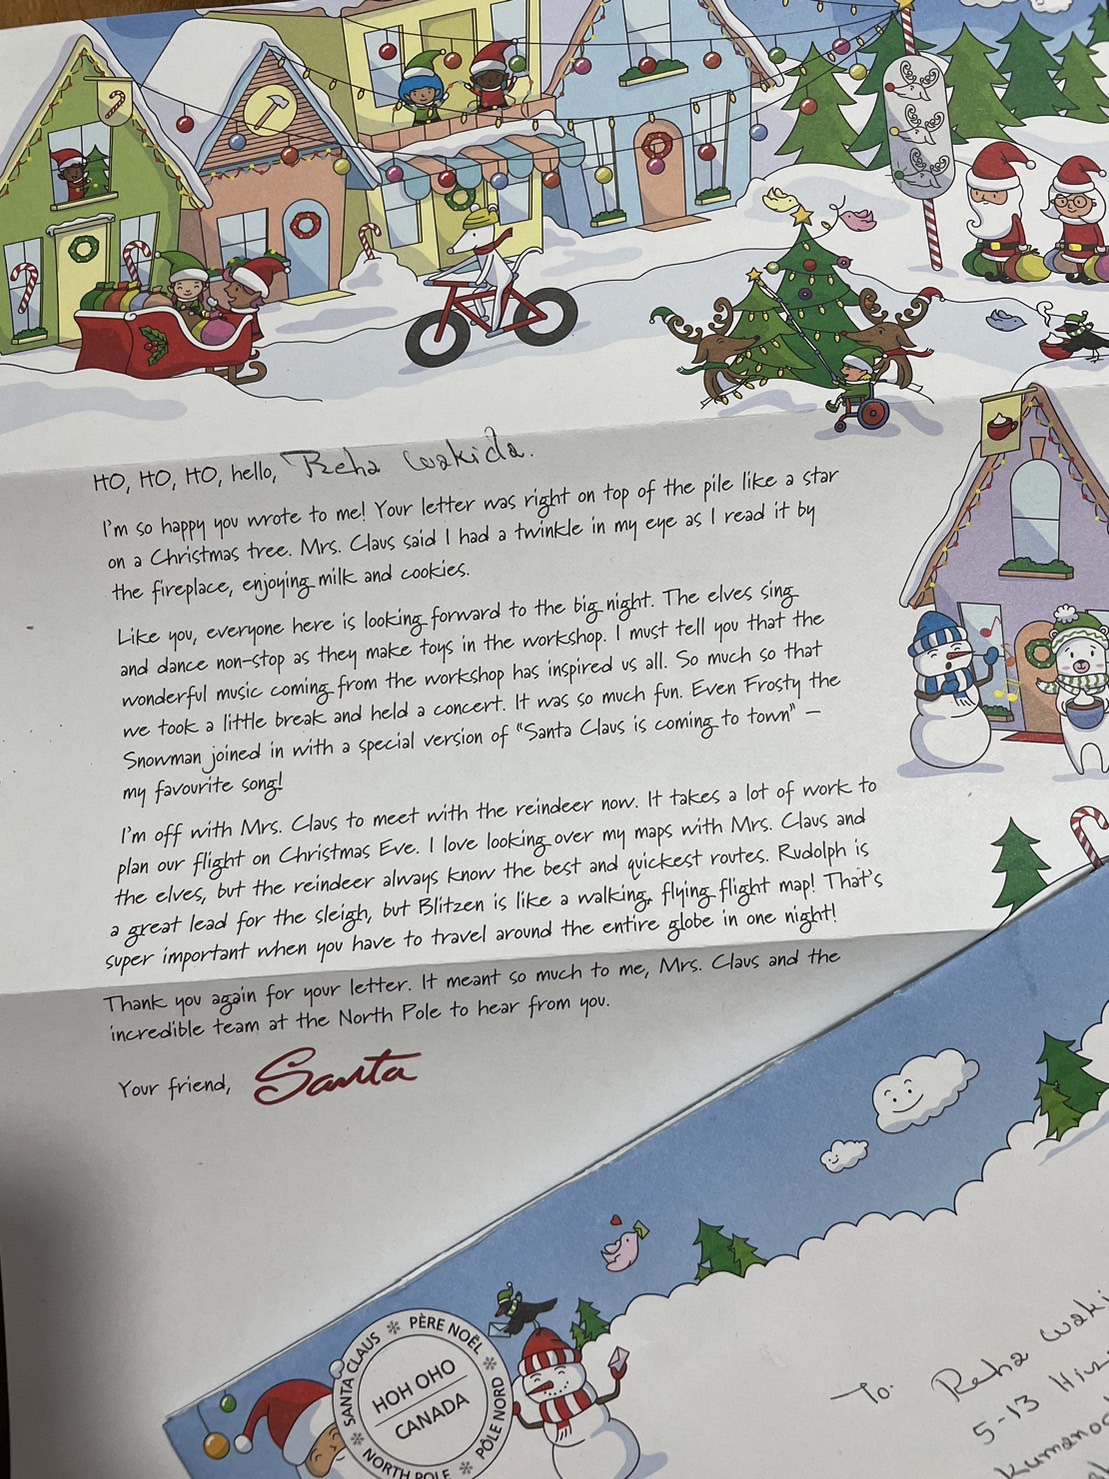 HO, HO, HO, hello, Reha wakida.
I'm so happy you wrote to me! Your letter was right on top of the pile like a star
on a Christmas tree. Mrs. Claus said I had a twinkle in my eye as I read it by
the fireplace, enjoying milk and cookies.
Like you, everyone here is looking forward to the big night. The elves sing
and dance non-stop as they make toys in the workshop. I must tell you that the
wonderful music coming from the workshop has inspired us all. So much so that
we took a little break and held a concert. It was so much fun. Even Frosty the
Snowman joined in with a special version of "Santa Claus is coming to town" –
my favourite song!
I'm off with Mrs. Claus to meet with the reindeer now. It takes a lot of work to
plan our flight on Christmas Eve. I love looking over my maps with Mrs. Claus and
the elves, but the reindeer always know the best and quickest routes. Rudolph is
a great lead for the sleigh, but Blitzen is like a walking, flying flight map! That's
super important when you have to travel around the entire globe in one night!
Thank you again for your letter. It meant so much to me, Mrs. Claus and the
incredible team at the North Pole to hear from you.
Your friend, Santa
SANTA CLAUS PÈRE NOËL
HOH OHO
CANADA
NORTH POLE PÔLE NORD
To. Reha
5-13